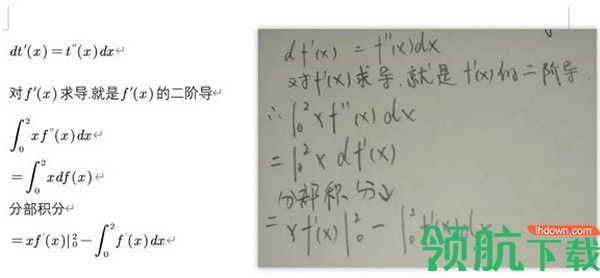 dt′(x)=t″(x)dx↵
对f′(x)求导.就是f′(x)的二阶导↵
∫₀²xf″(x)dx↵
=∫₀²xdf(x)↵
分部积分↵
=xf′(x)|₀²−∫₀²f′(x)dx↵
df′(x) = f″(x)dx
对f′(x)求导.就是f′(x)的二阶导.
∴∫₀²xf″(x)dx
=∫₀²x df′(x)
分部积分
=xf′(x)|₀²−∫₀²f′(x)dx
领航下载
lhdown.com